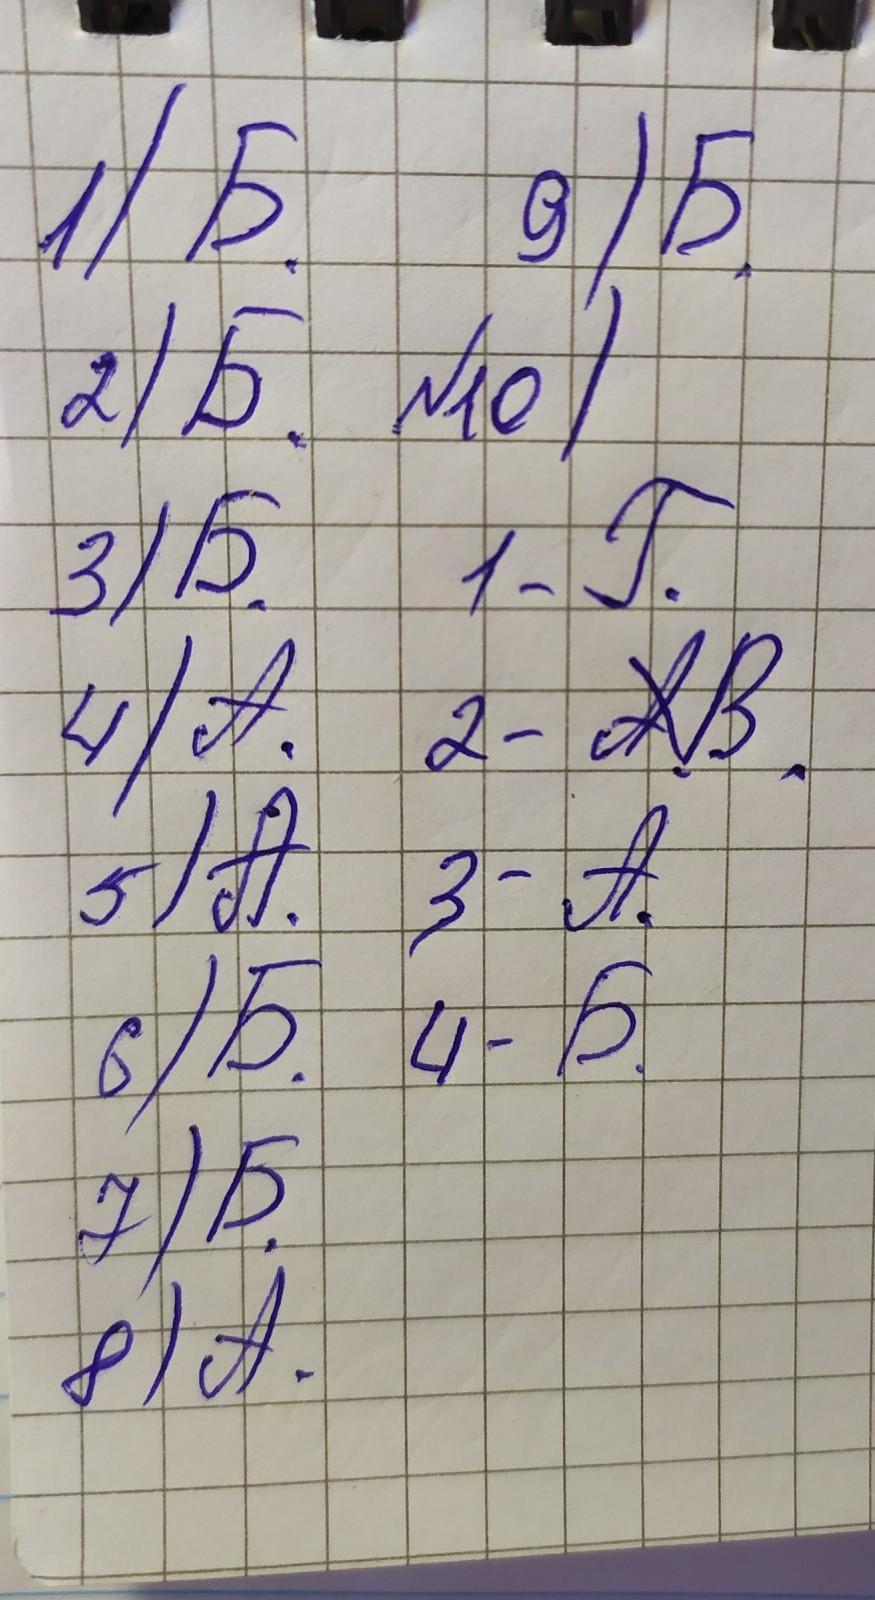 1) Б.
2) Б.
3) Б.
4) А.
5) А.
6) Б.
7) Б.
8) А.
9) Б.
№10)
1- Г.
2- В.
3- А.
4- Б.